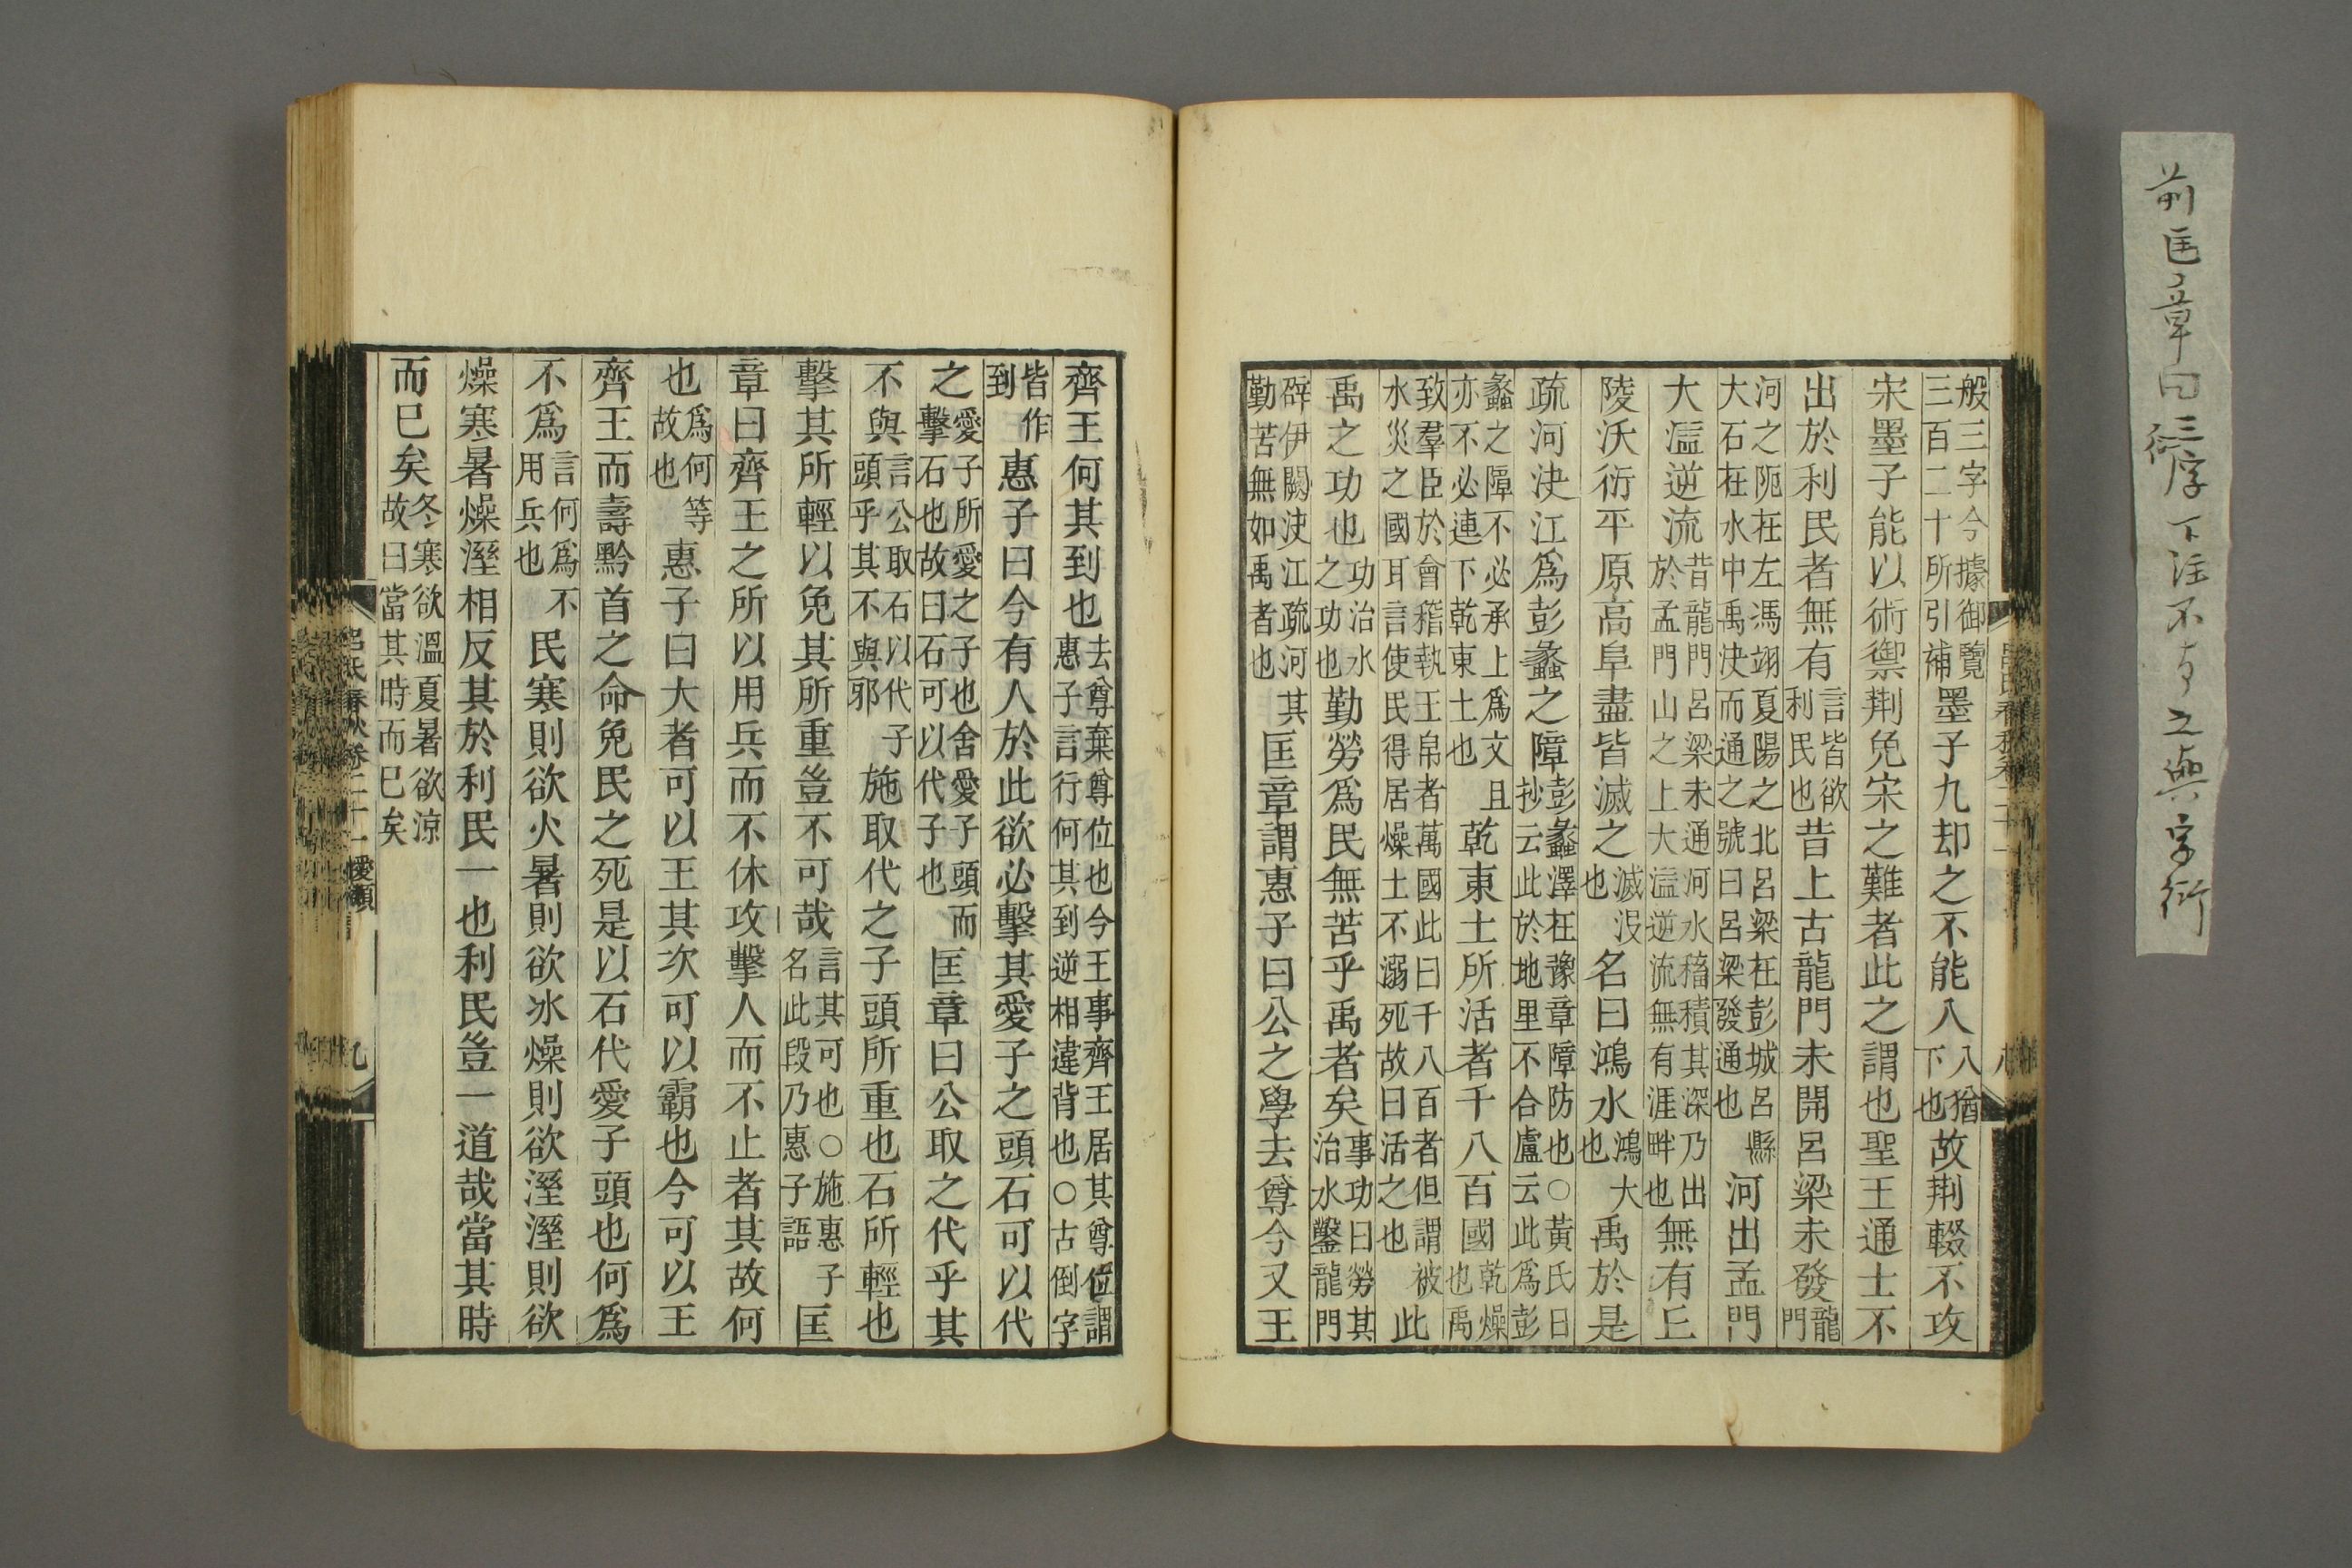 般三字今據御覽三百二十所引補墨子九却之不能入入猶下也故荆輟不攻
宋墨子能以術禦荆免宋之難者此之謂也聖王通士不
出於利民者無有言皆欲利民也昔上古龍門未開呂梁未發龍門
河之阨在左馮翊夏陽之北呂梁在彭城呂縣大石在水中禹決而通之號曰呂梁發通也河出孟門
大溢逆流昔龍門呂梁未通河水稸積其深乃出於孟門山之上大溢逆流無有涯畔也無有丘
陵沃衍平原高阜盡皆滅之滅沒也名曰鴻水鴻大也禹於是
疏河決江爲彭蠡之障彭蠡澤在豫章障防也○黃氏日抄云此於地里不合盧云此爲彭
蠡之障不必承上爲文且亦不必連下乾東土也乾東土所活者千八百國乾燥也禹
致羣臣於會稽執玉帛者萬國此曰千八百者但謂被水災之國耳言使民得居燥土不溺死故曰活之也此
禹之功也功治水之功也勤勞爲民無苦乎禹者矣事功曰勞其治水鑿龍門
辟伊闕決江疏河其勤苦無如禹者也匡章謂惠子曰公之學去尊今又王
齊王何其到也去尊棄尊位也今王事齊王居其尊位謂惠子言行何其到逆相違背也○古倒字
皆作到惠子曰今有人於此欲必擊其愛子之頭石可以代
之愛子所愛之子也舍愛子頭而擊石也故曰石可以代子也匡章曰公取之代乎其
不與言公取石以代子頭乎其不與邪施取代之子頭所重也石所輕也
擊其所輕以免其所重豈不可哉言其可也○施惠子名此段乃惠子語匡
章曰齊王之所以用兵而不休攻擊人而不止者其故何
也爲何等故也惠子曰大者可以王其次可以霸也今可以王
齊王而壽黔首之命免民之死是以石代愛子頭也何爲
不爲言何爲不用兵也民寒則欲火暑則欲冰燥則欲溼溼則欲
燥寒暑燥溼相反其於利民一也利民豈一道哉當其時
而已矣冬寒欲溫夏暑欲涼故曰當其時而已矣
呂氏春秋卷二十一愛類
九
前匡章曰三字衍下注不當又與字衍